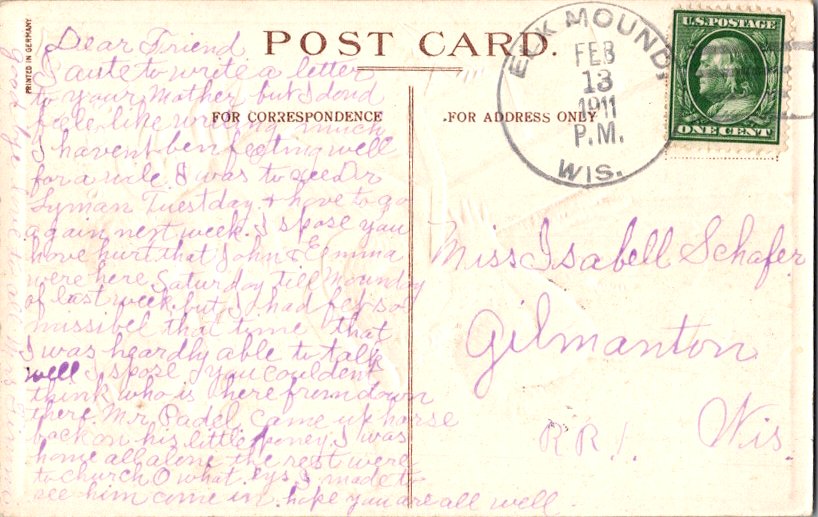 PRINTED IN GERMANY
POST CARD.
FOR CORRESPONDENCE
FOR ADDRESS ONLY
ELK MOUND,
FEB
13
1911
P.M.
WIS.
U.S. POSTAGE
ONE CENT
Dear Friend
I aute to write a letter
to your Mother but I dond
feele like writing much
I havent ben feeling well
for a wile. I was to see Dr
Lyman Tuesday + have to go
again next week. I spose you
have hurt that John & Emma
were here Saturday till Mounday
of last week. but I had so
missibel that time that
I was heardly able to talk
well I spose you coulden't
think who is here from down
there. Mr. Padel came up horse
back on his little poney I was
home all alone the rest were
to church O what eys I made to
see him come in. hope you are all well.
Miss Isabell Schafer
Gilmanton
RR1. Wis.